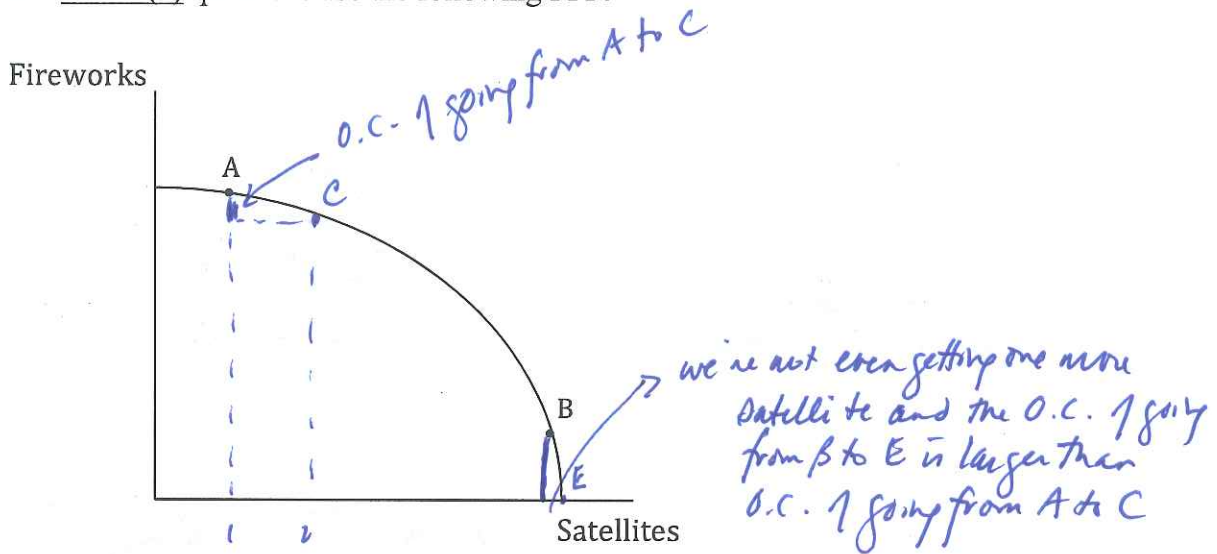 Fireworks
O.C. of going from A to C
A
C
B
E
we're not even getting one more
satellite and the O.C. of going
from B to E is larger than
O.C. of going from A to C
Satellites
1 2